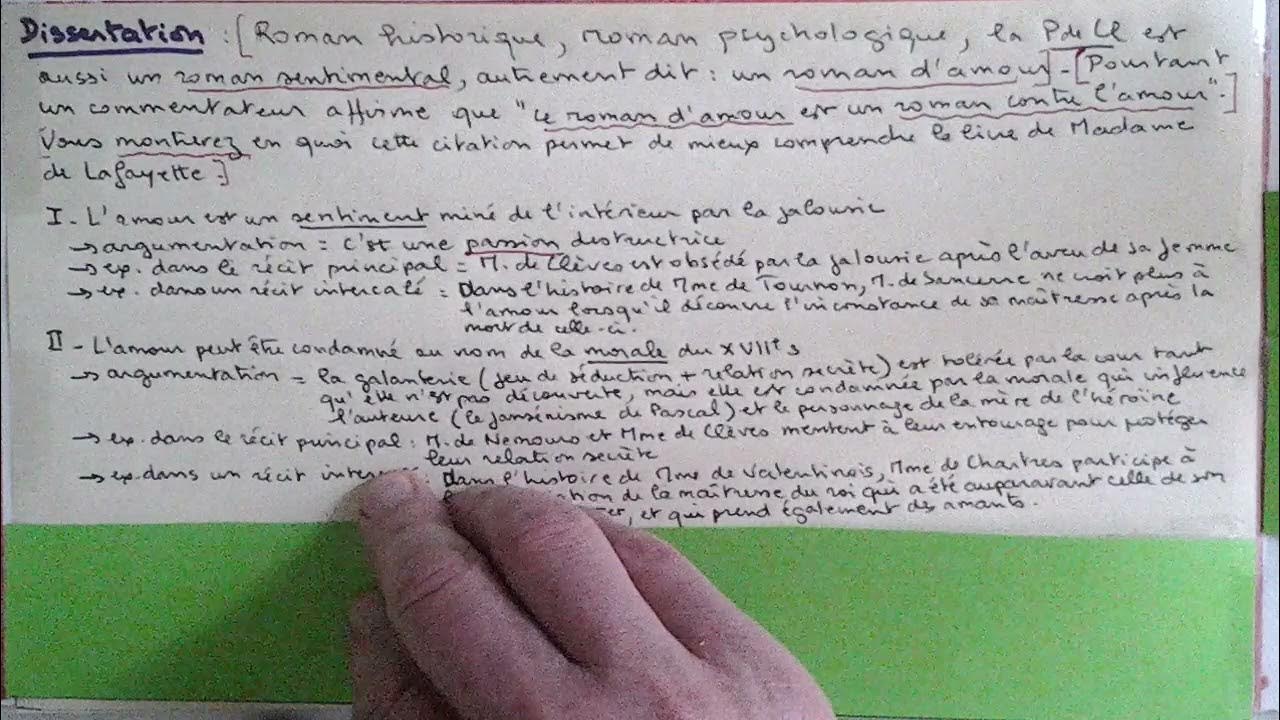 Dissertation : [Roman historique, roman psychologique, la P de Cl est
aussi un roman sentimental, autrement dit : un roman d'amour] - [Pourtant
un commentateur affirme que "ce roman d'amour est un roman contre l'amour".]
[Vous montrerez en quoi cette citation permet de mieux comprendre le livre de Madame
de Lafayette.]
I - L'amour est un sentiment miné de l'intérieur par la jalousie
→ argumentation = c'est une passion destructrice
→ ex. dans le récit principal = M. de Clèves est obsédé par la jalousie après l'aveu de sa femme
→ ex. dans un récit intercalé = Dans l'histoire de Mme de Tournon, M. de Sancerre ne croit plus à
l'amour lorsqu'il découvre l'inconstance de sa maîtresse après la
mort de celle-ci.
II - L'amour peut être condamné au nom de la morale du XVIIe s
→ argumentation = la galanterie (jeu de séduction + relation secrète) est tolérée par la cour tant
qu'elle n'est pas découverte, mais elle est condamnée par la morale qui influence
l'auteure (le jansénisme de Pascal) et le personnage de la mère de l'héroïne
→ ex. dans le récit principal : M. de Nemours et Mme de Clèves mentent à leur entourage pour protéger
leur relation secrète
→ ex. dans un récit : Dans l'histoire de Mme de Valentinois, Mme de Chartres participe à
de la maîtresse du roi qui a été auparavant celle de son
, et qui prend également des amants.